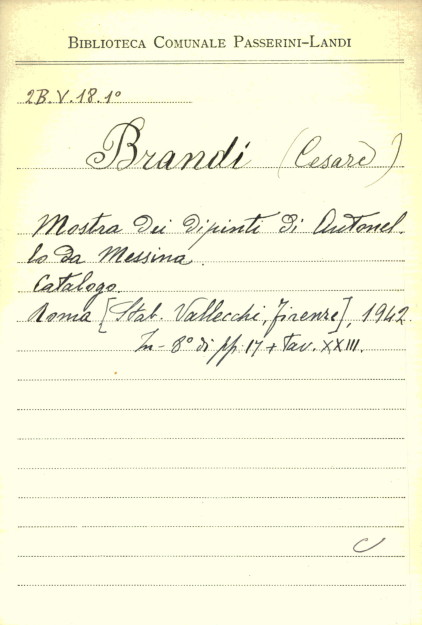 BIBLIOTECA COMUNALE PASSERINI-LANDI
2B.V.18.1º
Brandi (Cesare)
Mostra dei dipinti di Antonel-
lo da Messina.
Catalogo.
Roma [Stab. Vallecchi, Firenze], 1942.
In-8º di pp. 17 + tav. XXIII.
C